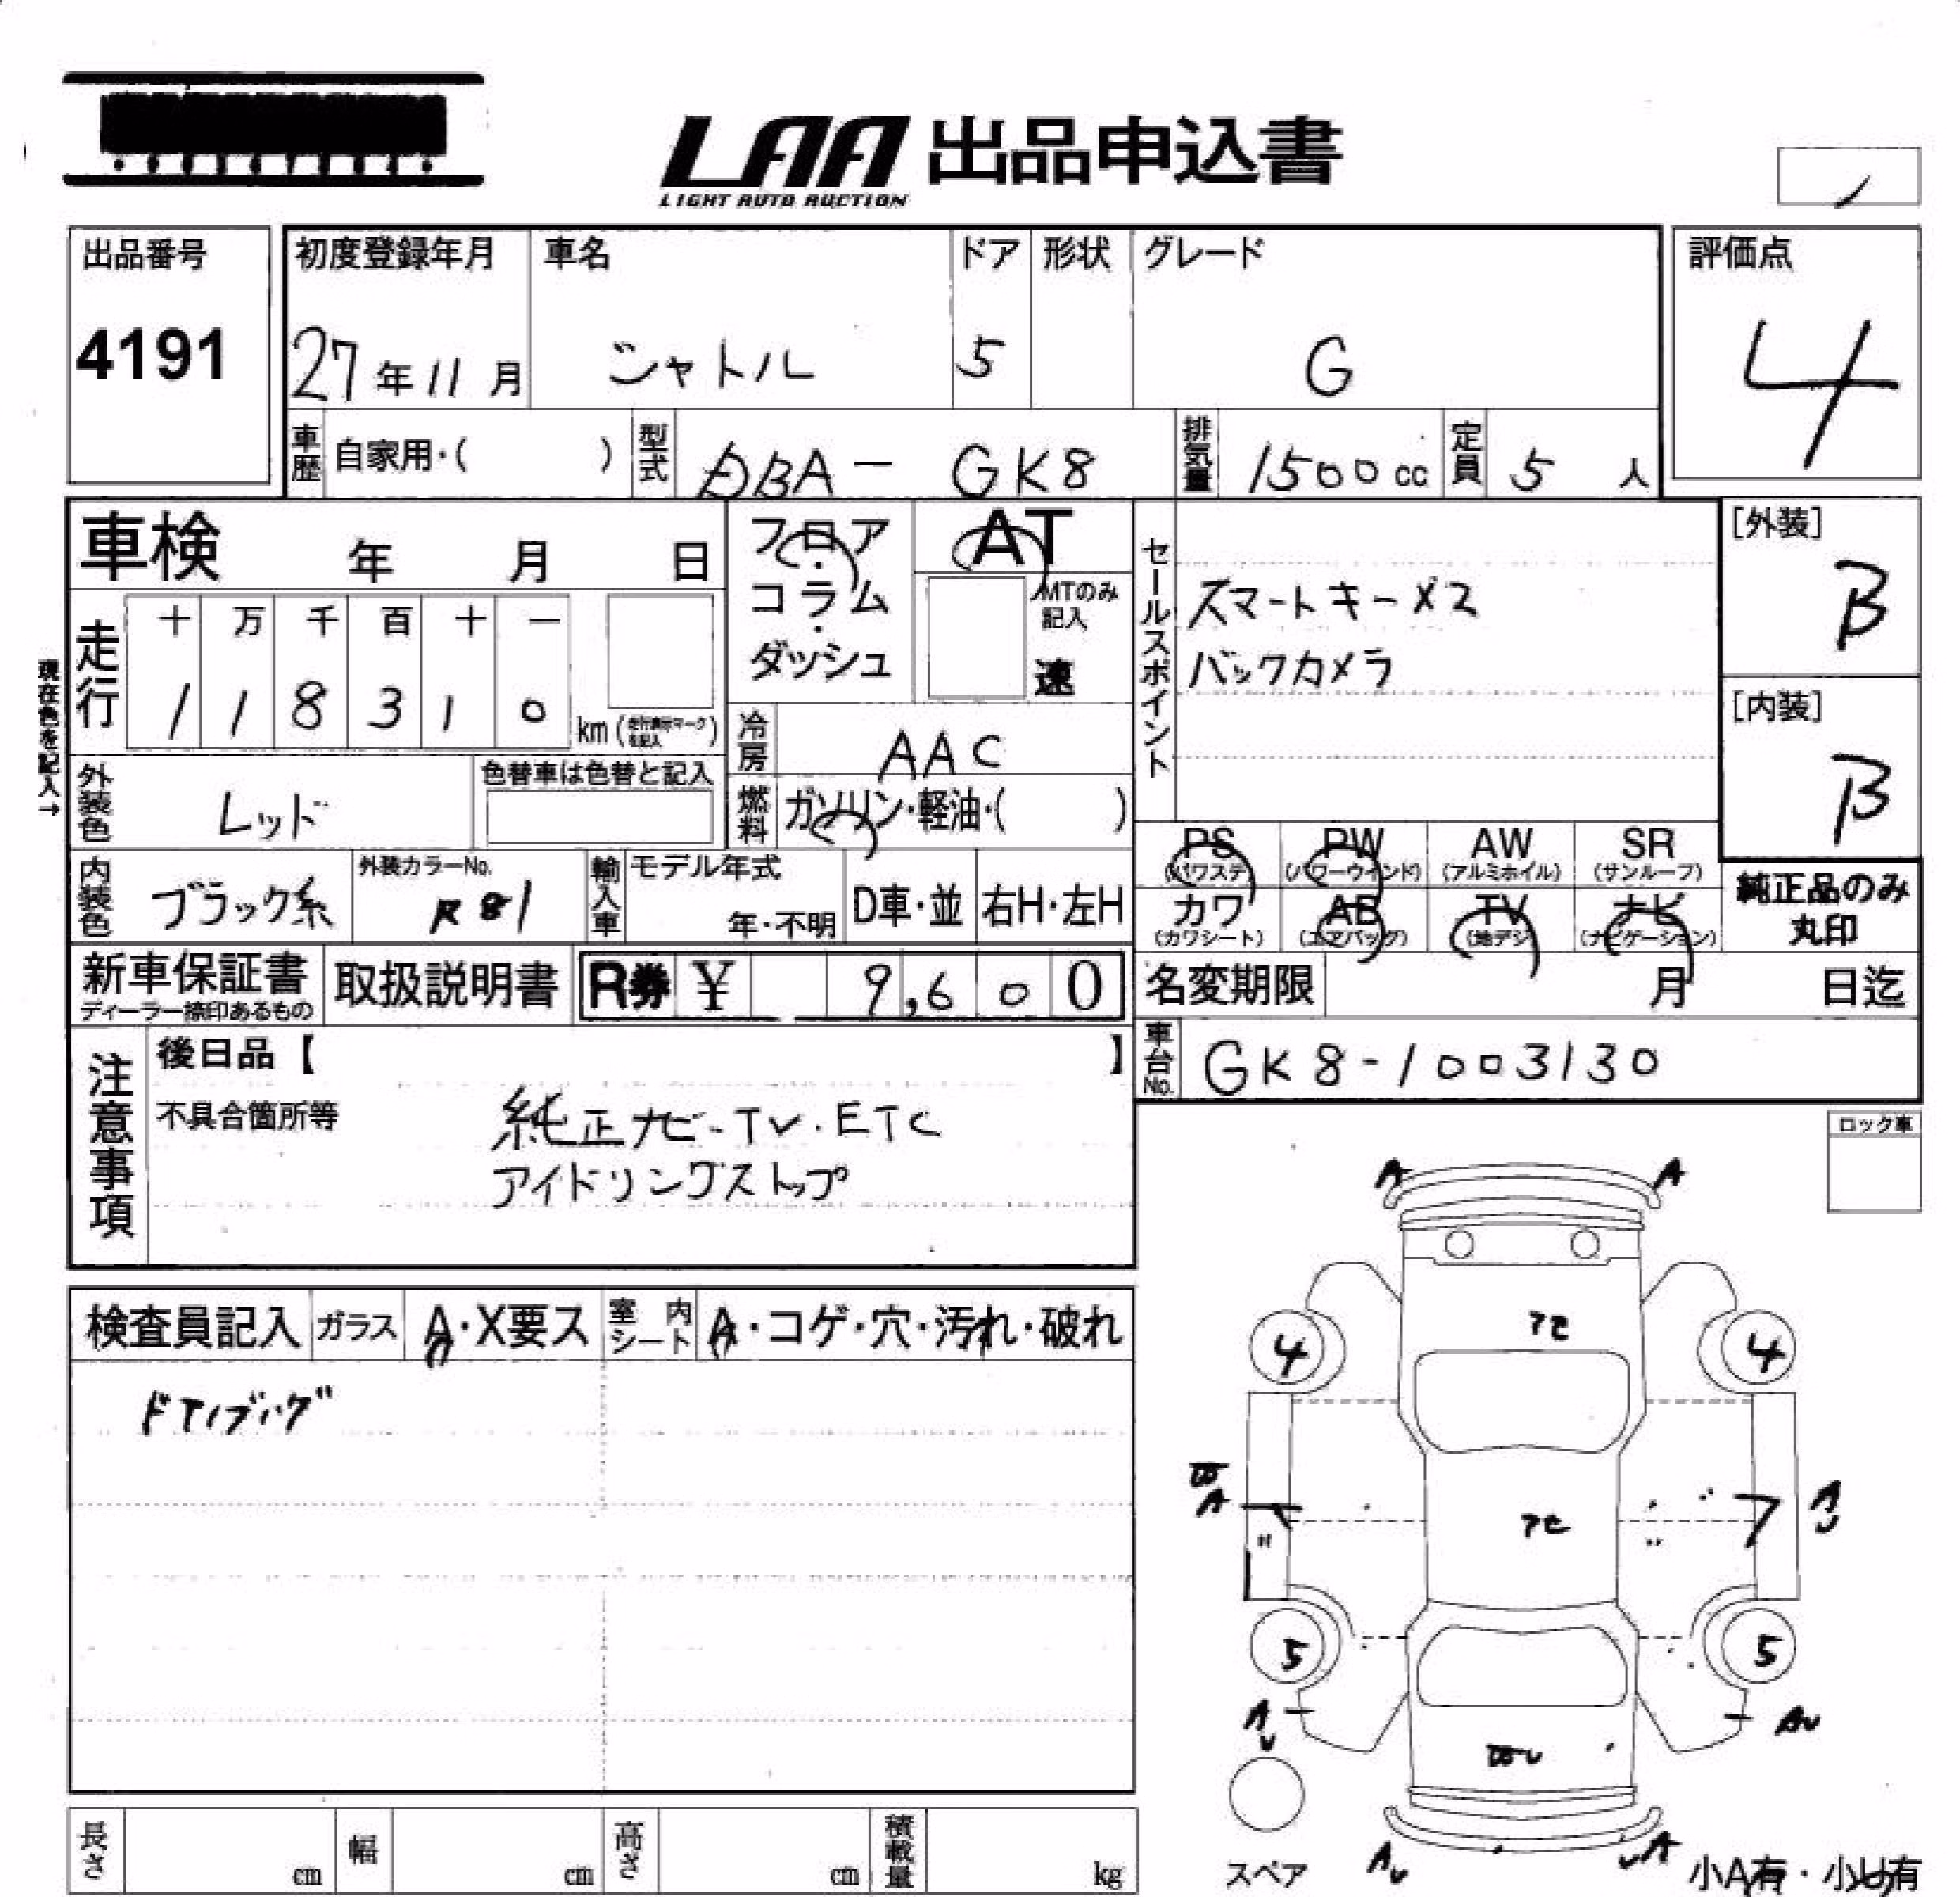 LAA 出品申込書
LIGHT AUTO AUCTION
出品番号
4191
初度登録年月
27年11月
車名
シャトル
ドア
5
形状
グレード
G
評価点
4
車歴 自家用・( )
型式 DBA- GK8
排気量 1500cc
定員 5人
車検 年 月 日
フロア・コラム・ダッシュ
AT
MTのみ記入
速
セールスポイント
スマートキー×2
バックカメラ
[外装]
B
[内装]
B
現在色を記入→
走行
十 万 千 百 十 一
1 1 8 3 1 0 km (走行表示マークを記入)
冷房 AAC
外装色 レッド
色替車は色替と記入
燃料 ガソリン・軽油・( )
内装色 ブラック系
外装カラーNo.
R81
輸入車 モデル年式
年・不明
D車・並
右H・左H
PS (パワステ)
PW (パワーウインド)
AW (アルミホイル)
SR (サンルーフ)
カワ (カワシート)
AB (エアバッグ)
TV (地デジ)
ナビ (ナビゲーション)
純正品のみ
丸印
新車保証書
ディーラー捺印あるもの
取扱説明書
R券 ¥ 9,600
名変期限 月 日迄
車台No. GK8-1003130
注意事項
後日品【 】
不具合箇所等
純正ナビ・TV・ETC
アイドリングストップ
ロック車
検査員記入
ガラス A・X要ス
室内シート A・コゲ・穴・汚れ・破れ
A A
アセ
4 4
A
アセ
5 5
AU
AU
AU
スペア
小A有・小U有
長さ cm
幅 cm
高さ cm
積載量 kg